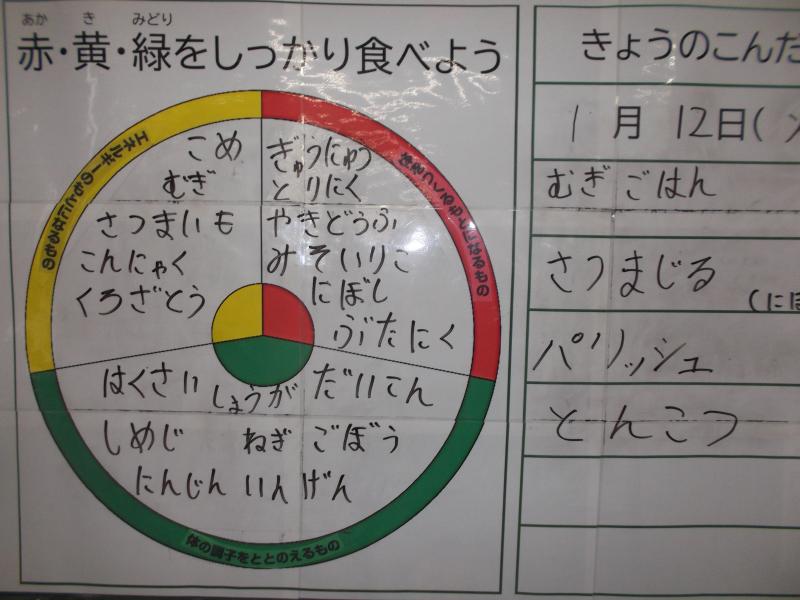 あか き みどり
赤・黄・緑をしっかり食べよう
エネルギーのもとになるもの
こめ
むぎ
さつまいも
こんにゃく
くろざとう
体をつくるもとになるもの
ぎゅうにゅう
とりにく
やきどうふ
みそ いりこ
にぼし
ぶたにく
はくさい しょうが だいこん
しめじ ねぎ ごぼう
にんじん いんげん
体の調子をととのえるもの
きょうのこんだ
1月12日(
むぎごはん
さつまじる
(にぼ
パリッシュ
とんこつ